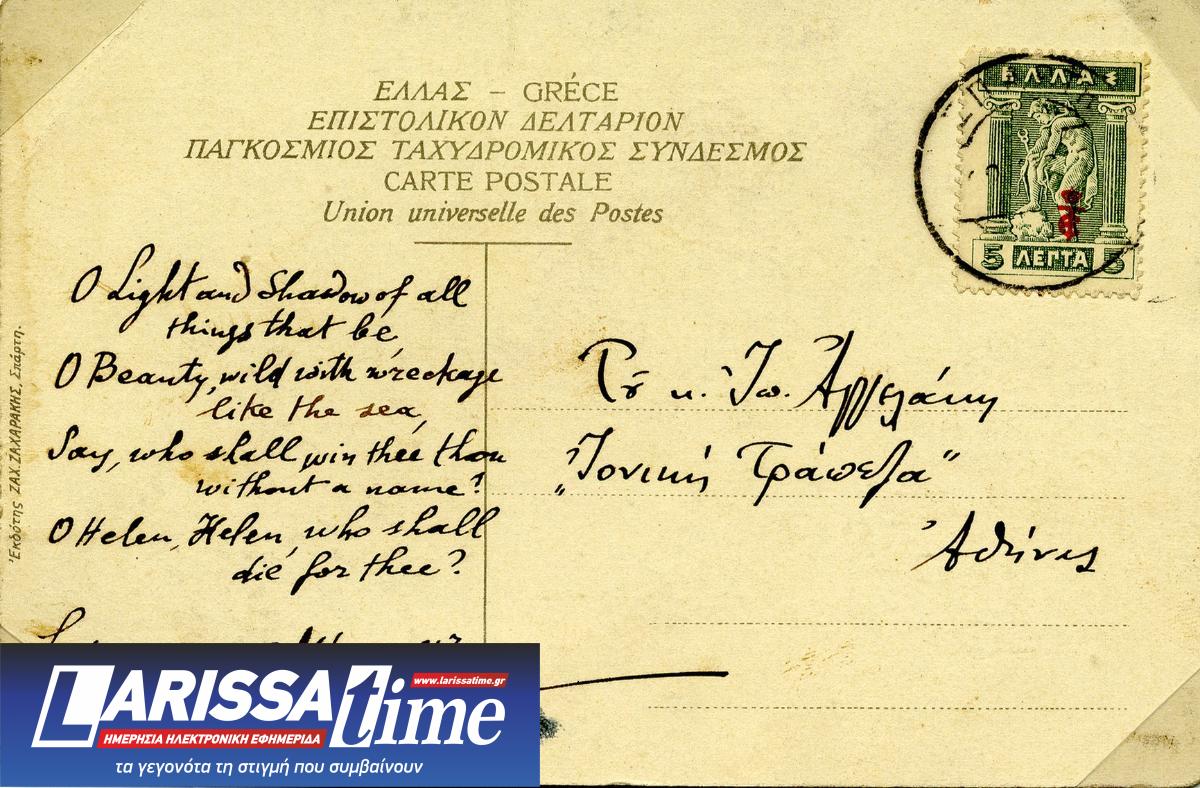 ΕΛΛΑΣ – GRÉCE
ΕΠΙΣΤΟΛΙΚΟΝ ΔΕΛΤΑΡΙΟΝ
ΠΑΓΚΟΣΜΙΟΣ ΤΑΧΥΔΡΟΜΙΚΟΣ ΣΥΝΔΕΣΜΟΣ
CARTE POSTALE
Union universelle des Postes
ΕΛΛΑΣ
5 ΛΕΠΤΑ 5
O Light and Shadow of all
things that be,
O Beauty, wild with wreckage
like the sea,
Say, who shall win thee thou
without a name?
O Helen, Helen, who shall
die for thee?
Τοῦ κ. Ἰω. Ἀγγελάκη
„Ἰονική Τράπεζα"
Ἀθήνας
Ἐκδότης ΖΑΧ. ΖΑΧΑΡΑΚΗΣ, Σπάρτη.
LARISSAtime
www.larissatime.gr
ΗΜΕΡΗΣΙΑ ΗΛΕΚΤΡΟΝΙΚΗ ΕΦΗΜΕΡΙΔΑ
τα γεγονότα τη στιγμή που συμβαίνουν